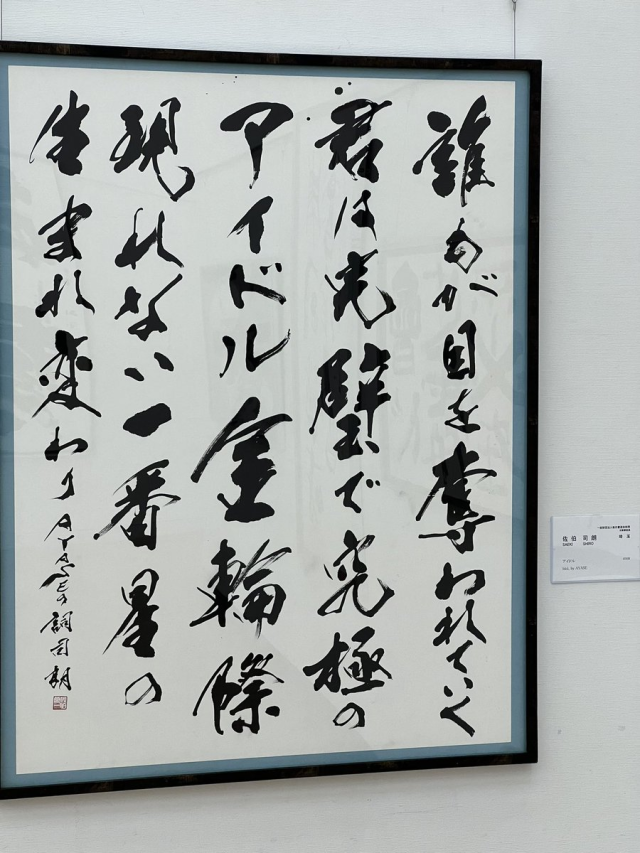 誰もが目を奪われていく
君は完璧で究極の
アイドル金輪際
現れない一番星の
生まれ変わり AYASEの詞 司朗
佐伯 司朗
SAEKI SHIRO
埼玉
アイドル